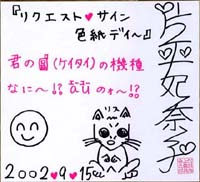 『リクエスト♥サイン
色紙デイ〜』
片平妃奈子
君の(ケイタイ)の機種
なに〜!? のォ〜!?
リス
2002♥9♥15